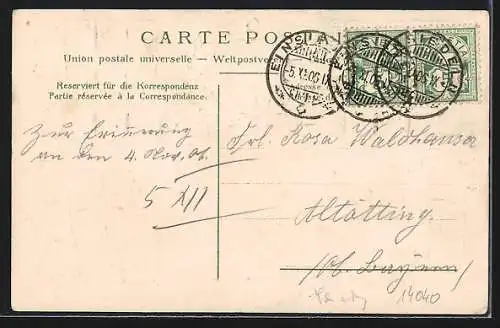 CARTE POS
Union postale universelle — Weltpostve
Reserviert für die Korrespondenz
Partie réservée à la Correspondance.
EINSIEDELN
-5.XI.06.
Zur Erinnerung
an den 4. Nov. 06.
5 XII
Frl. Rosa Waldhauser
Altötting
Ob. Bayern
14040